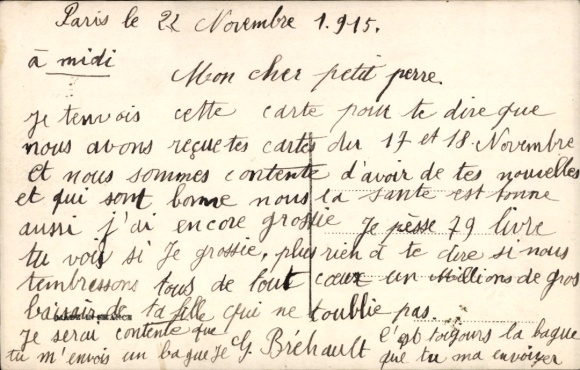 Paris le 22 Novembre 1.915.
à midi
Mon cher petit perre
Je tenvois cette carte pour te dire que
nous avons reçue tes cartes du 17 et 18. Novembre
et nous sommes contente d'avoir de tes nouvelles
et qui sont bonne nous la sante est bonne
aussi j'ai encore grossie Je pèsse 79 livre
tu vois si Je grossie, plus rien a te dire si nous
tembressons tous de tout coeux un Millions de gros
baisair de ta fille qui ne toublie pas.
Je serai contente que
tu m'envois un bague Je
G. Bréhault
c'est toigours la bague
que tu ma envoiyer